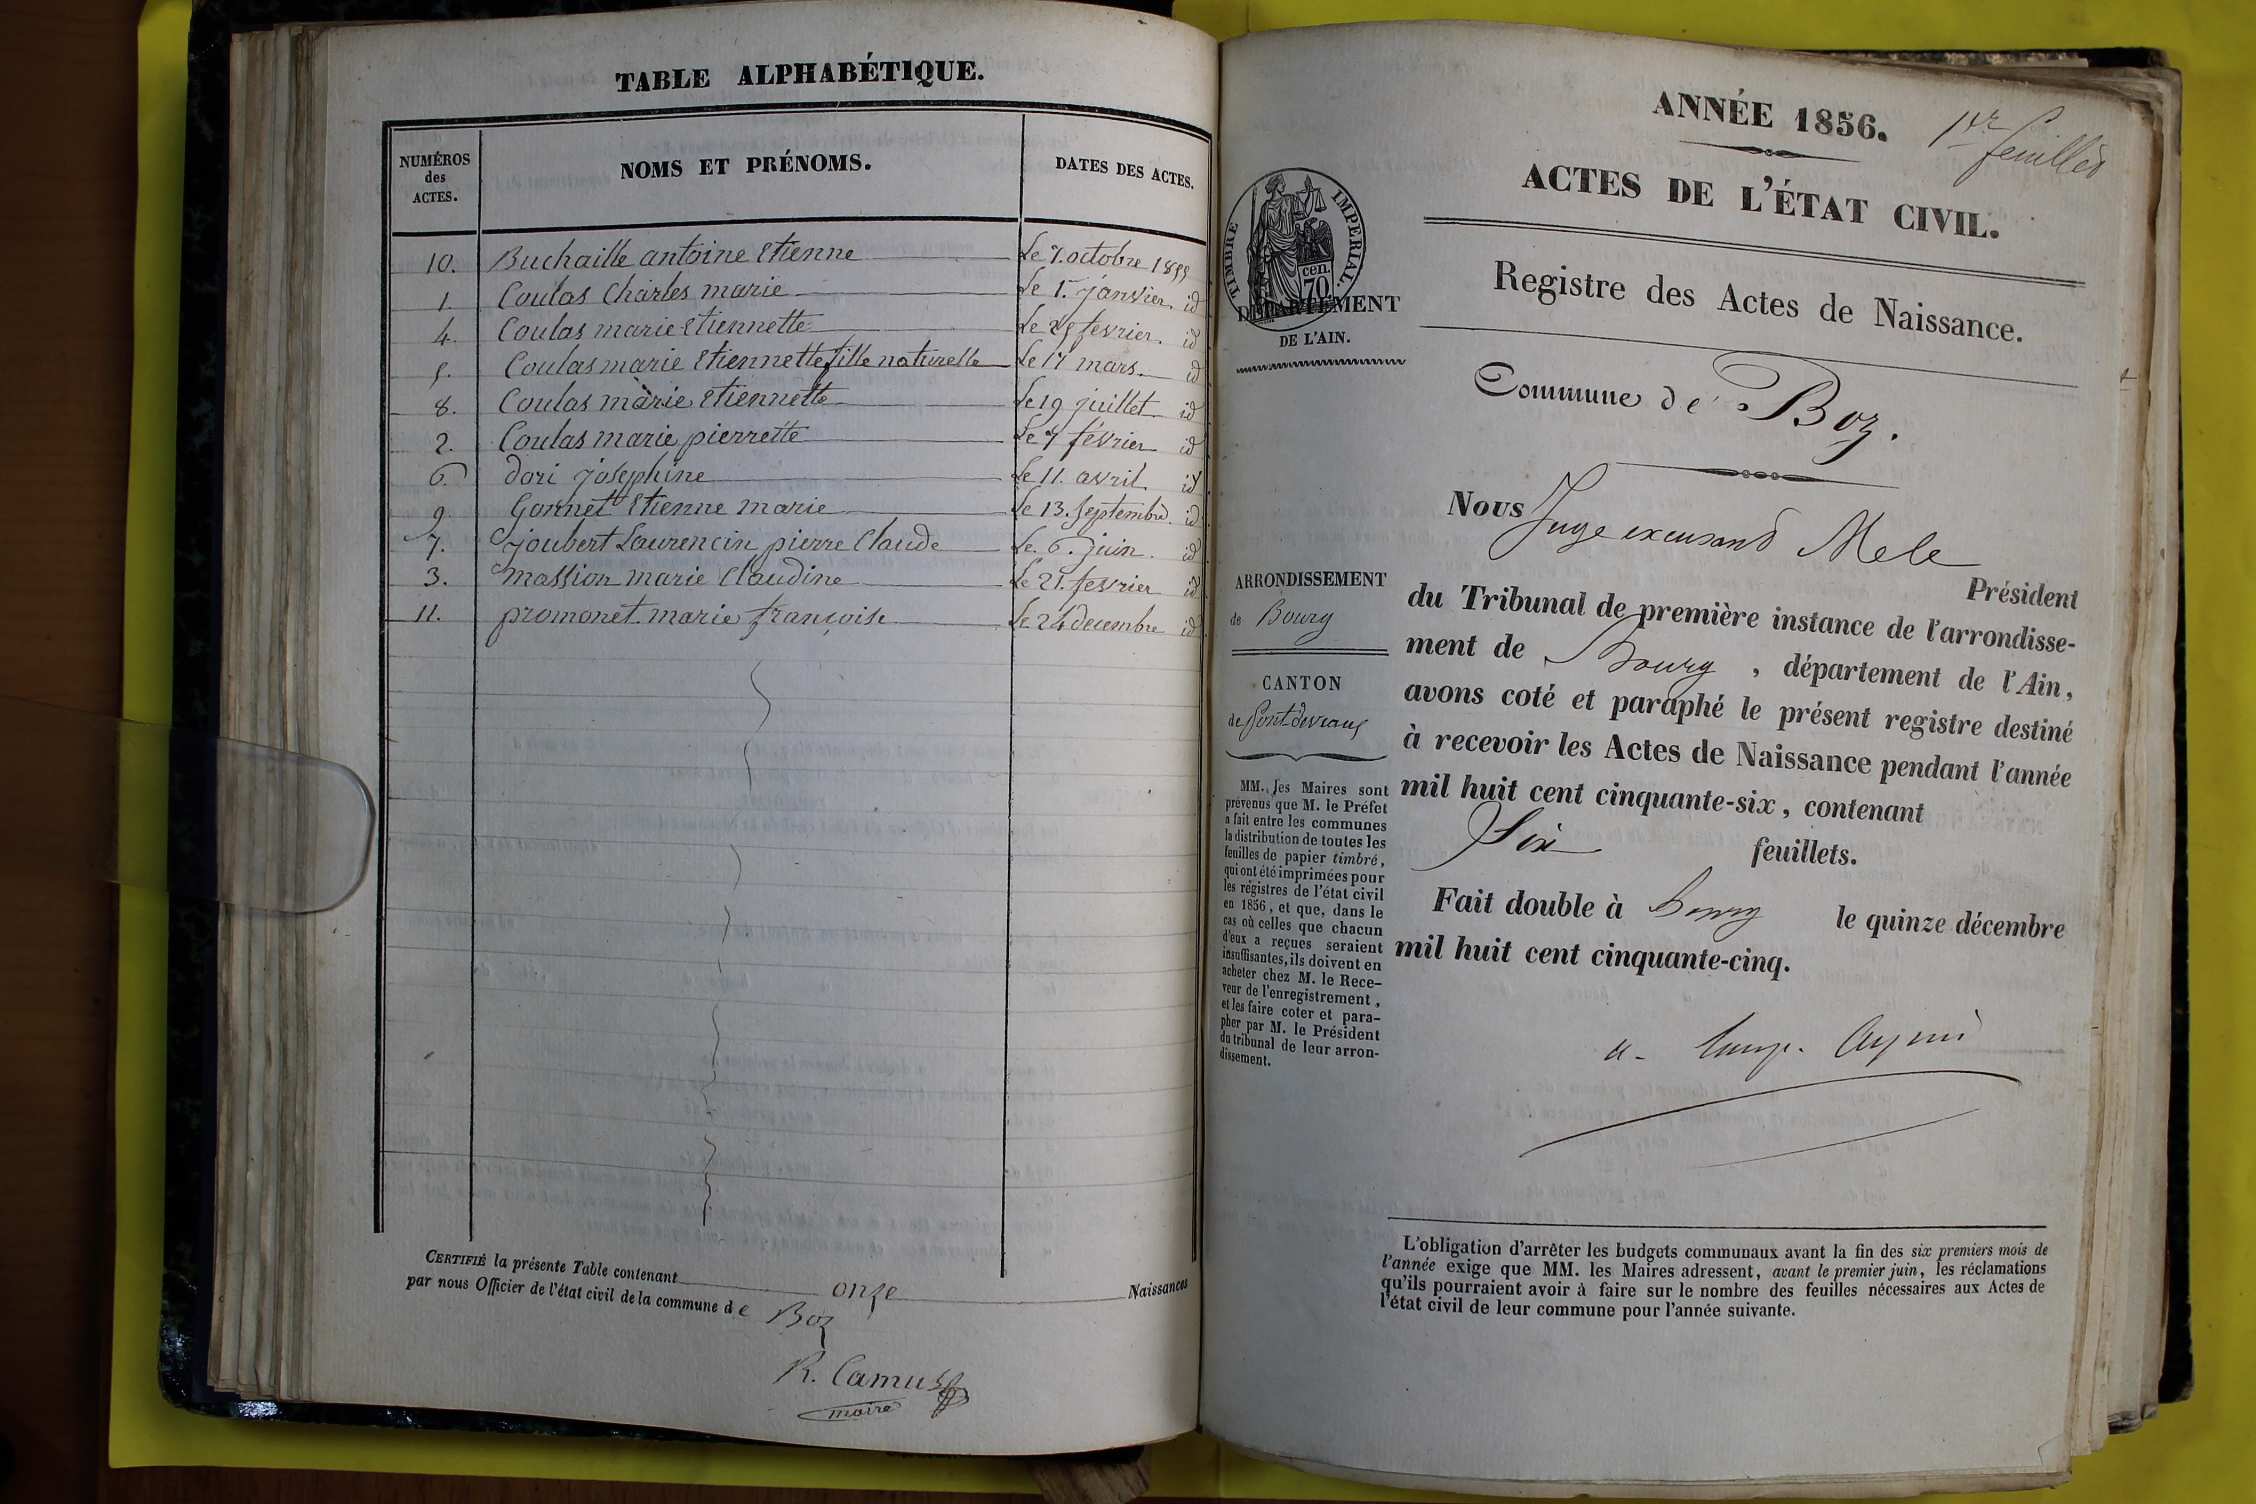 TABLE ALPHABÉTIQUE.
NUMÉROS des ACTES. NOMS ET PRÉNOMS. DATES DES ACTES.
10. Buchaille antoine Etienne Le 7. octobre 1855
1. Coulas Charles marie Le 5. janvier id
4. Coulas marie Etiennette Le 25 fevrier. id
5. Coulas marie Etiennette fille naturelle Le 17 mars. id
8. Coulas marie Etiennette Le 19 juillet id
2. Coulas marie pierrette Le 7 février id
6. dori josephine Le 11. avril id
9. Gonnet Etienne marie Le 13. Septembre. id
7. joubert Laurencin pierre Claude Le. 6. juin. id
3. massion marie Claudine Le 21. fevrier id
11. promonet. marie françoise Le 24 decembre id
CERTIFIÉ la présente Table contenant onze Naissances
par nous Officier de l'état civil de la commune de Boz
R. Camus
maire
ANNÉE 1856.
1er feuillet
ACTES DE L'ÉTAT CIVIL.
TIMBRE IMPERIAL.
70 cen.
DÉPARTEMENT
DE L'AIN.
Registre des Actes de Naissance.
Commune de Boz.
ARRONDISSEMENT
de Bourg
CANTON
de Pontdevaux
MM. les Maires sont
prévenus que M. le Préfet
a fait entre les communes
la distribution de toutes les
feuilles de papier timbré,
qui ont été imprimées pour
les régistres de l'état civil
en 1856, et que, dans le
cas où celles que chacun
d'eux a reçues seraient
insuffisantes, ils doivent en
acheter chez M. le Rece-
veur de l'enregistrement,
et les faire coter et para-
pher par M. le Président
du tribunal de leur arron-
dissement.
Nous Juge Président
du Tribunal de première instance de l'arrondisse-
ment de Bourg, département de l'Ain,
avons coté et paraphé le présent registre destiné
à recevoir les Actes de Naissance pendant l'année
mil huit cent cinquante-six, contenant
Six feuillets.
Fait double à Bourg le quinze décembre
mil huit cent cinquante-cinq.
L'obligation d'arrêter les budgets communaux avant la fin des six premiers mois de
l'année exige que MM. les Maires adressent, avant le premier juin, les réclamations
qu'ils pourraient avoir à faire sur le nombre des feuilles nécessaires aux Actes de
l'état civil de leur commune pour l'année suivante.